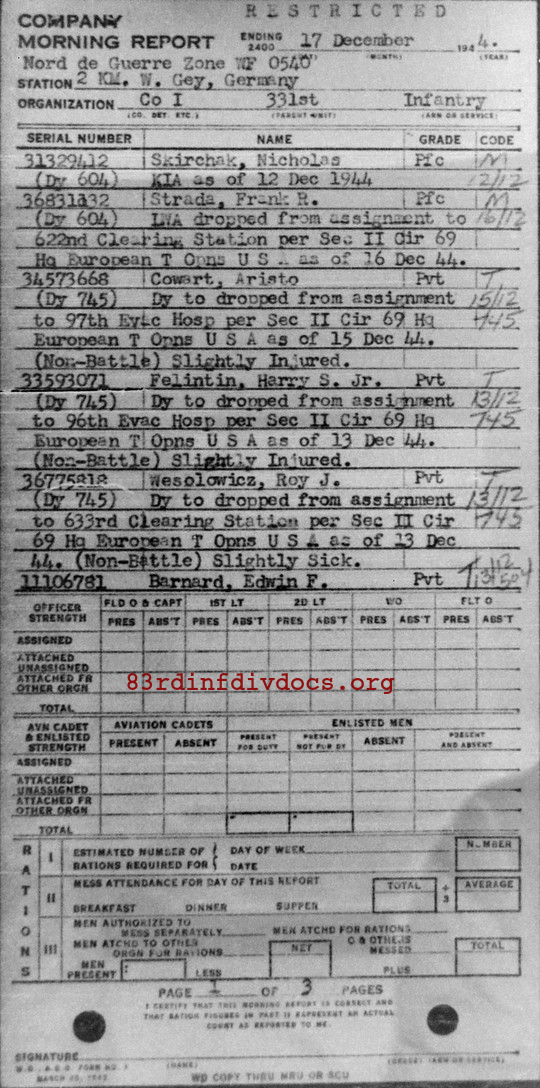 RESTRICTED
COMPANY
MORNING REPORT ENDING 2400 17 December 1944.
(MONTH) (YEAR)
Nord de Guerre Zone WF 0540
STATION 2 KM. W. Gey, Germany
ORGANIZATION Co I 331st Infantry
(CO. DET. ETC.) (PARENT UNIT) (ARM OR SERVICE)
SERIAL NUMBER NAME GRADE CODE
31329412 Skirchak, Nicholas Pfc M
(Dy 604) KIA as of 12 Dec 1944 12/12
36831332 Strada, Frank R. Pfc M
(Dy 604) LWA dropped from assignment to 16/12
622nd Clearing Station per Sec II Cir 69
Hq European T Opns U S A as of 16 Dec 44.
34573668 Cowart, Aristo Pvt T
(Dy 745) Dy to dropped from assignment 15/12
to 97th Evac Hosp per Sec II Cir 69 Hq 745
European T Opns U S A as of 15 Dec 44.
(Non-Battle) Slightly Injured.
33593071 Felintin, Harry S. Jr. Pvt T
(Dy 745) Dy to dropped from assignment 13/12
to 96th Evac Hosp per Sec II Cir 69 Hq 745
European T Opns U S A as of 13 Dec 44.
(Non-Battle) Slightly Injured.
36775818 Wesolowicz, Roy J. Pvt T
(Dy 745) Dy to dropped from assignment 13/12
to 633rd Clearing Station per Sec II Cir 745
69 Hq European T Opns U S A as of 13 Dec
44. (Non-Battle) Slightly Sick.
11106781 Barnard, Edwin F. Pvt T 13/12
OFFICER STRENGTH FLD O & CAPT 1ST LT 2D LT WO FLT O
PRES ABS'T PRES ABS'T PRES ABS'T PRES ABS'T PRES ABS'T
ASSIGNED
ATTACHED UNASSIGNED
ATTACHED FR OTHER ORGN
83rdinfdivdocs.org
TOTAL
AVN CADET & ENLISTED STRENGTH AVIATION CADETS ENLISTED MEN
PRESENT ABSENT PRESENT FOR DUTY PRESENT NOT FOR DY ABSENT PRESENT AND ABSENT
ASSIGNED
ATTACHED UNASSIGNED
ATTACHED FR OTHER ORGN
TOTAL
RATIONS
I ESTIMATED NUMBER OF RATIONS REQUIRED FOR { DAY OF WEEK DATE NUMBER
II MESS ATTENDANCE FOR DAY OF THIS REPORT TOTAL ÷ 3 AVERAGE
BREAKFAST DINNER SUPPER
III MEN AUTHORIZED TO MESS SEPARATELY MEN ATCHD FOR RATIONS
MEN ATCHD TO OTHER ORGN FOR RATIONS NET O & OTHERS MESSED TOTAL
MEN PRESENT LESS PLUS
PAGE 1 OF 3 PAGES
I CERTIFY THAT THIS MORNING REPORT IS CORRECT AND
THAT RATION FIGURES IN PART II REPRESENT AN ACTUAL
COUNT AS REPORTED TO ME.
SIGNATURE
W.D., A.G.O. FORM NO. 1 (NAME) (GRADE) (ARM OR SERVICE)
MARCH 23, 1942
WD COPY THRU MRU OR SCU